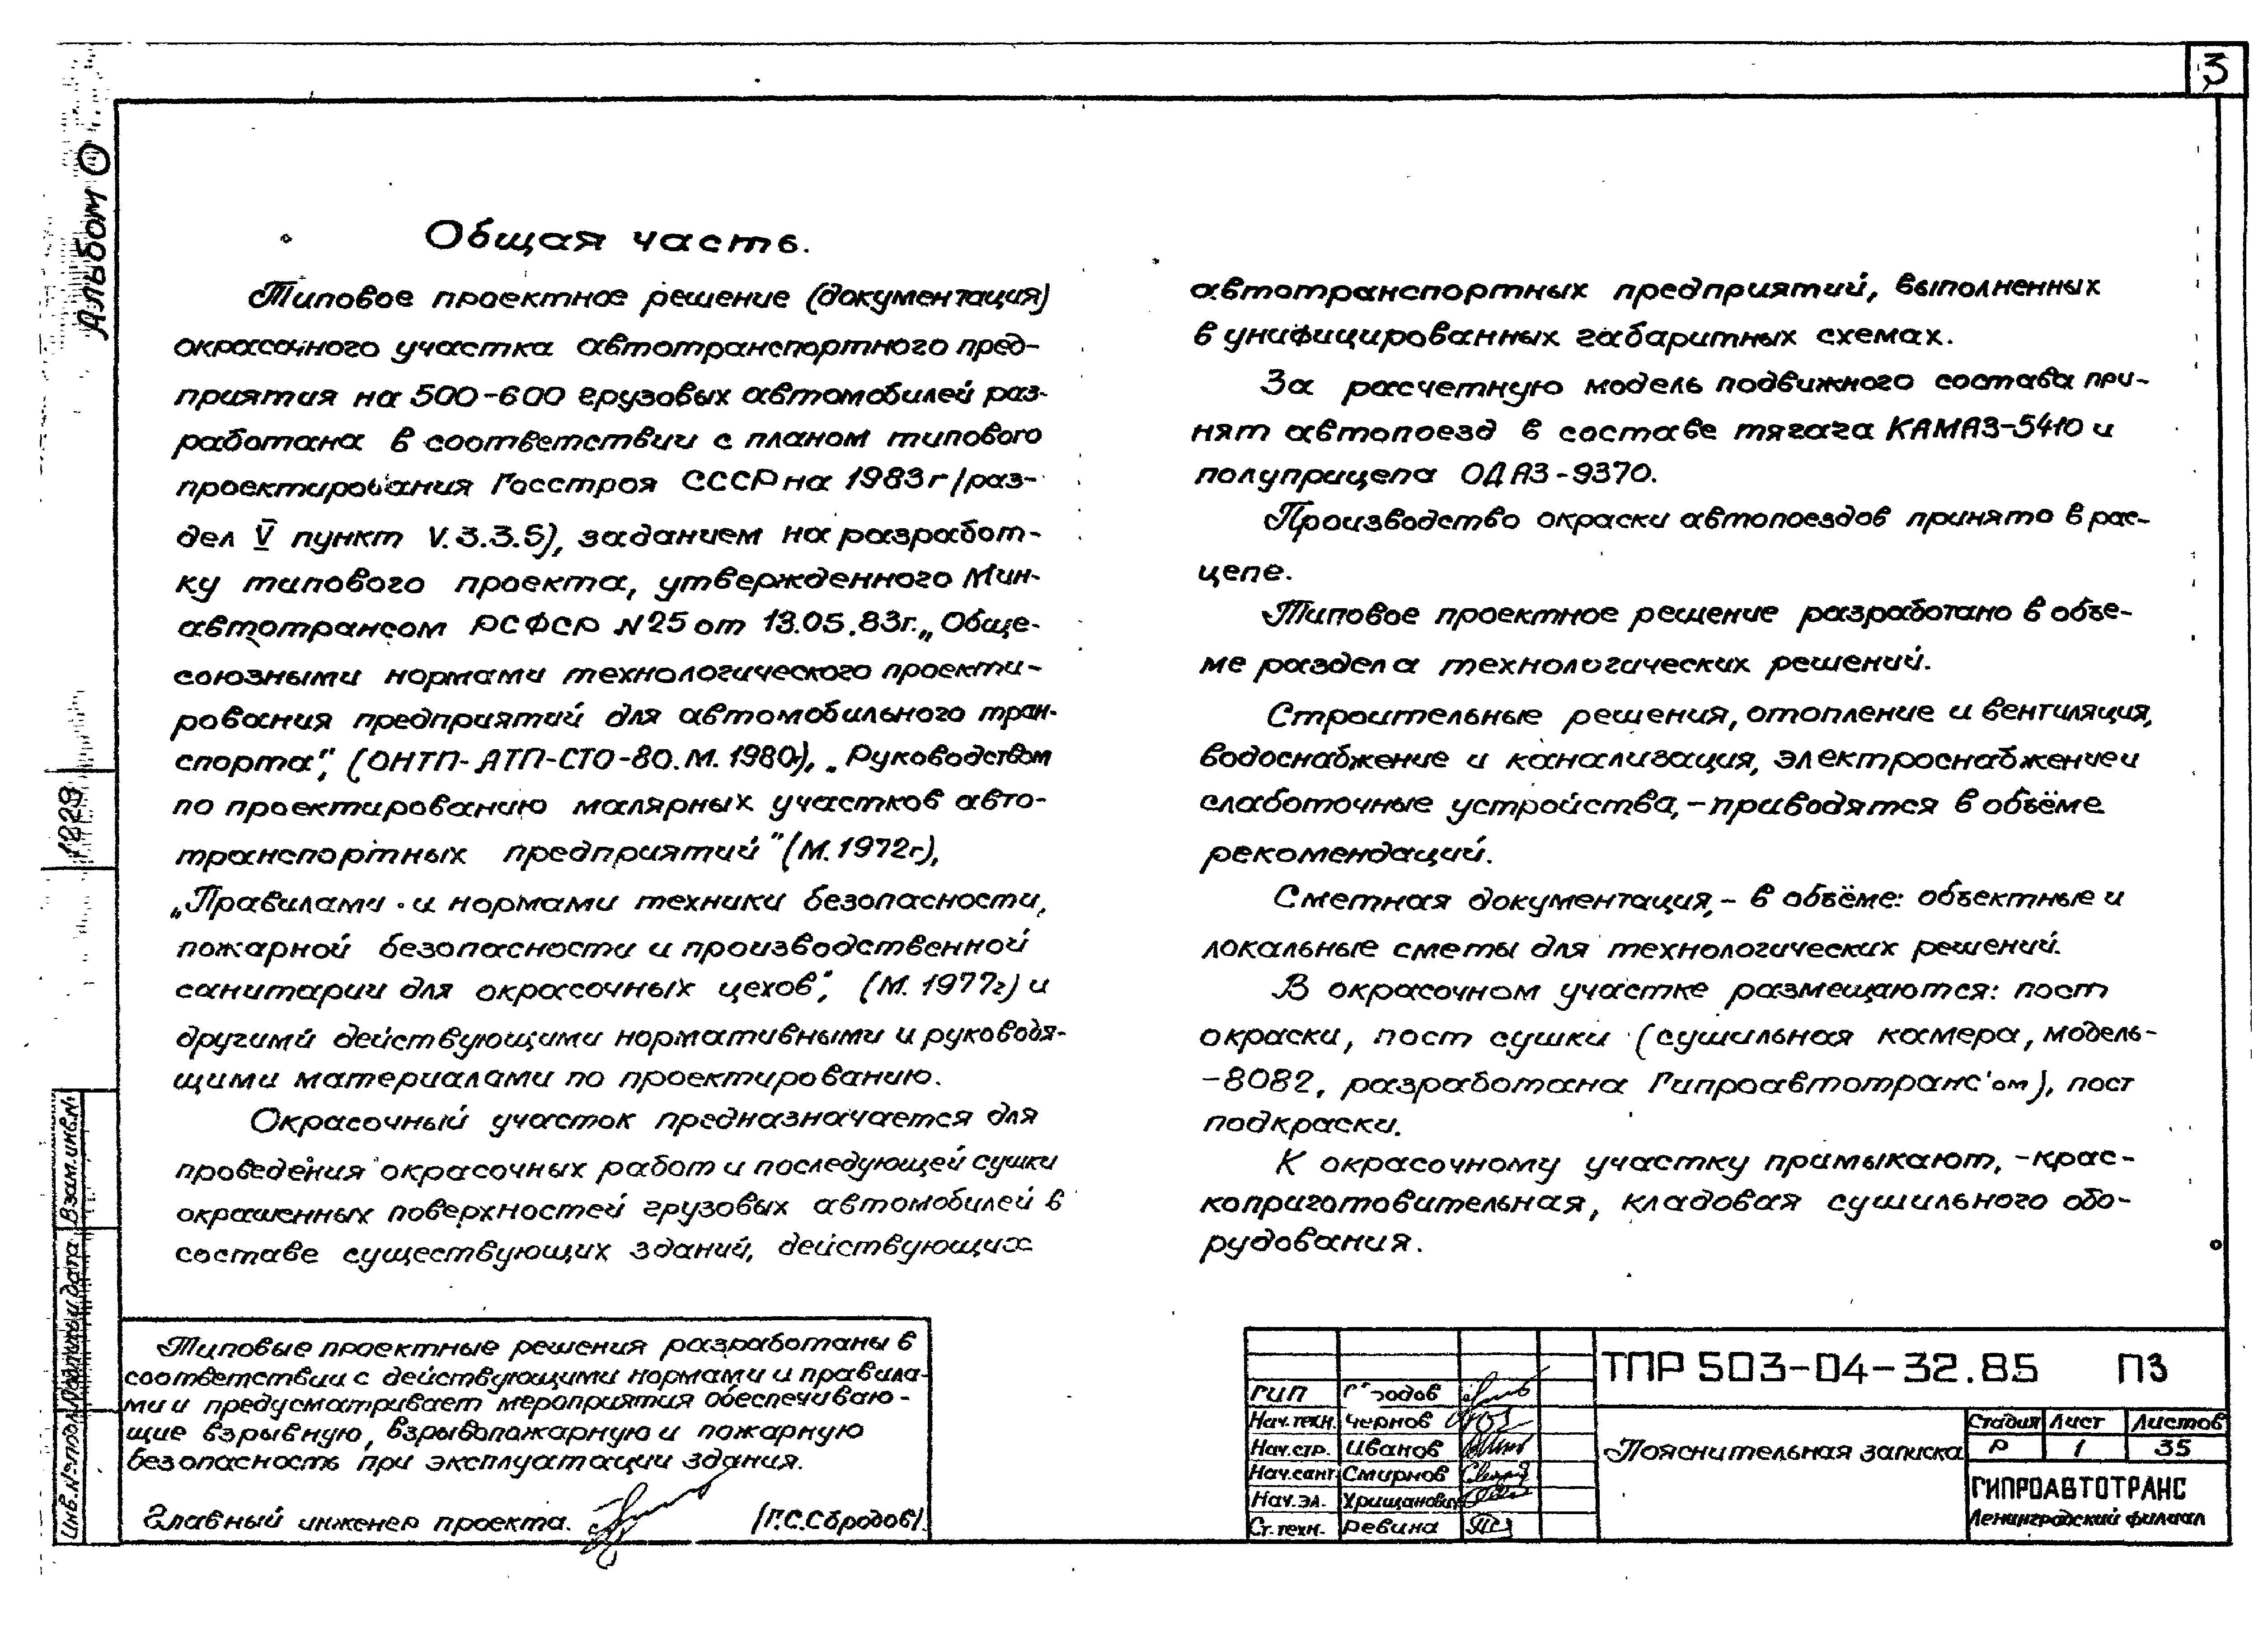 3
Альбом 0
Общая часть.
Типовое проектное решение (документация)
окрасочного участка автотранспортного пред-
приятия на 500-600 грузовых автомобилей раз-
работана в соответствии с планом типового
проектирования Госстроя СССР на 1983г /раз-
дел V пункт V.3.3.5), заданием на разработ-
ку типового проекта, утвержденного Мин-
автотрансом РСФСР N25 от 13.05.83г. „Обще-
союзными нормами технологического проекти-
рования предприятий для автомобильного тран-
спорта", (ОНТП-АТП-СТО-80. М. 1980г), „Руководством
по проектированию малярных участков авто-
транспортных предприятий" (М. 1972г),
„Правилами и нормами техники безопасности,
пожарной безопасности и производственной
санитарии для окрасочных цехов", (М. 1977г) и
другими действующими нормативными и руководя-
щими материалами по проектированию.
Окрасочный участок предназначается для
проведения окрасочных работ и последующей сушки
окрашенных поверхностей грузовых автомобилей в
составе существующих зданий, действующих
автотранспортных предприятий, выполненных
в унифицированных габаритных схемах.
За расчетную модель подвижного состава при-
нят автопоезд в составе тягача КАМАЗ-5410 и
полуприцепа ОДАЗ-9370.
Производство окраски автопоездов принято в рас-
цепе.
Типовое проектное решение разработано в объе-
ме раздела технологических решений.
Строительные решения, отопление и вентиляция,
водоснабжение и канализация, электроснабжение и
слаботочные устройства, - приводятся в объёме
рекомендаций.
Сметная документация, - в объёме: объектные и
локальные сметы для технологических решений.
В окрасочном участке размещаются: пост
окраски, пост сушки (сушильная камера, модель-
-8082, разработана Гипроавтотранс'ом), пост
подкраски.
К окрасочному участку примыкают, - крас-
коприготовительная, кладовая сушильного обо-
рудования.
1229
Взам. инв. №
Подпись и дата
Инв. № подл.
Типовые проектные решения разработаны в
соответствии с действующими нормами и правила-
ми и предусматривает мероприятия обеспечиваю-
щие взрывную, взрывопожарную и пожарную
безопасность при эксплуатации здания.
Главный инженер проекта. (Г.С.Сбродов).
ТПР 503-04-32.85 ПЗ
ГИП
Нач. техн. Чернов
Нач. стр. Иванов
Нач. сант. Смирнов
Нач. эл. Хрищанович
Ст. техн. Ревина
Пояснительная записка
Стадия Лист Листов
Р 1 35
ГИПРОАВТОТРАНС
Ленинградский филиал